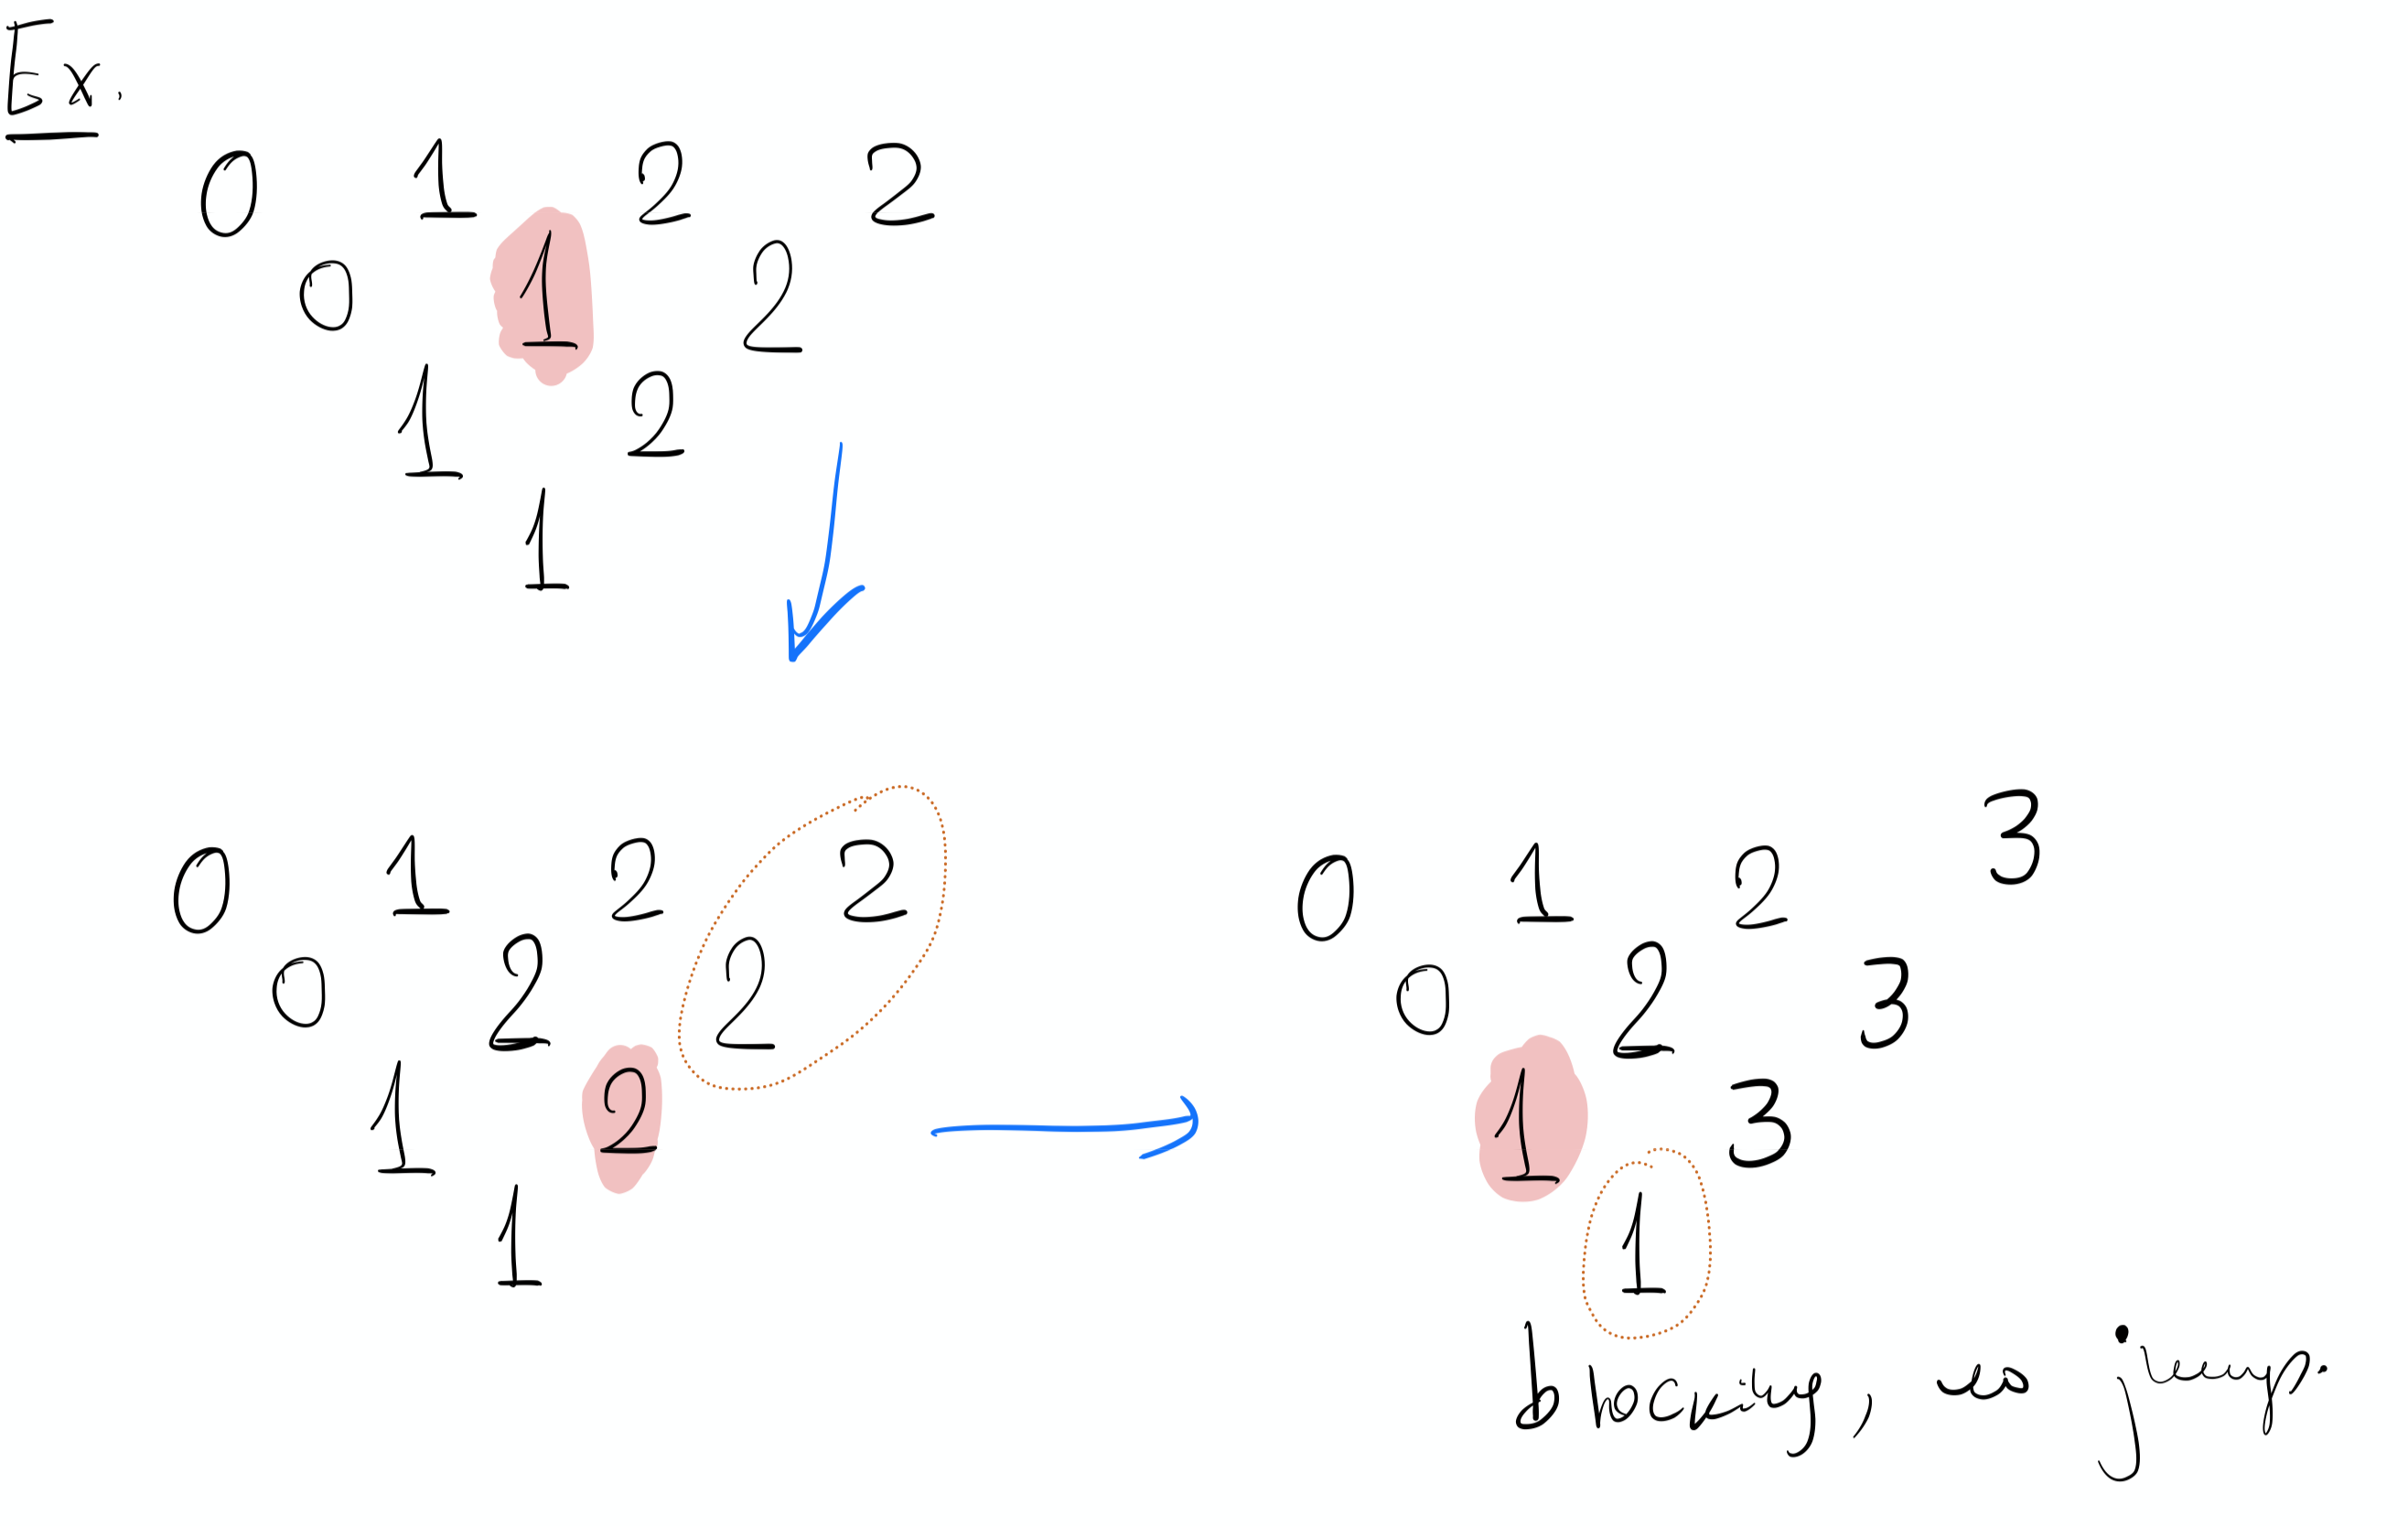 Ex.
0 1 2 2
0 1 2
1 2
1
0 1 2 2
0 2 2
1 2
1
0 1 2 3
0 2 3
1 3
1
blocking, no jump.